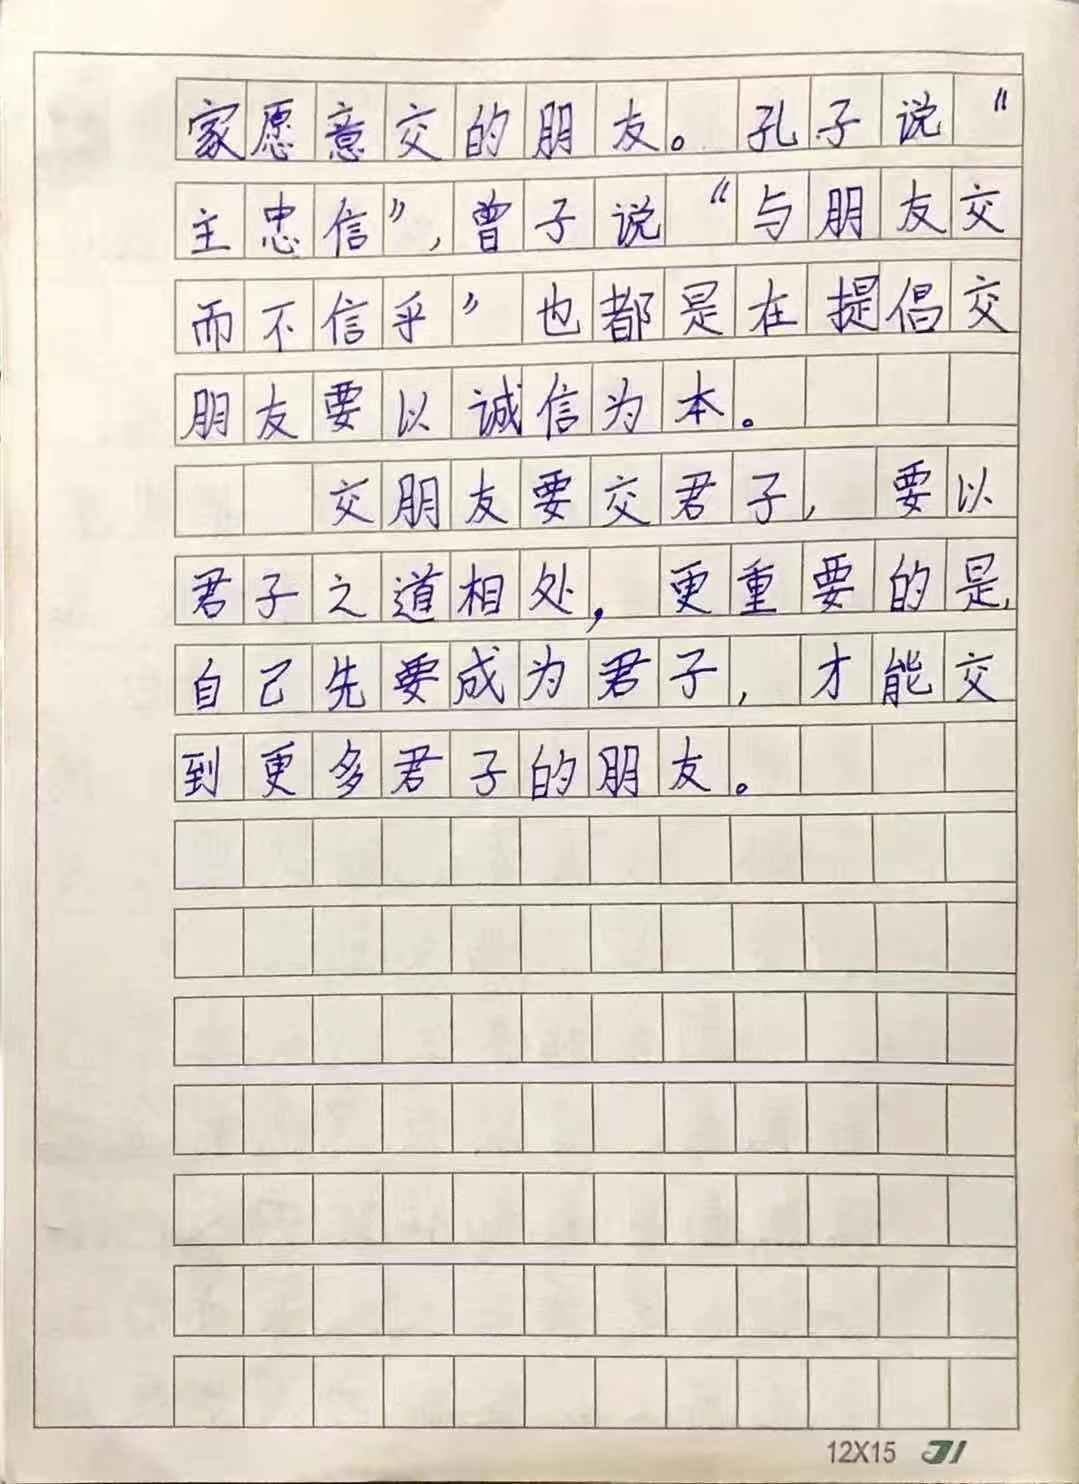 家愿意交的朋友。孔子说“
主忠信”,曾子说“与朋友交
而不信乎”也都是在提倡交
朋友要以诚信为本。
交朋友要交君子,要以
君子之道相处,更重要的是,
自己先要成为君子,才能交
到更多君子的朋友。
12X15